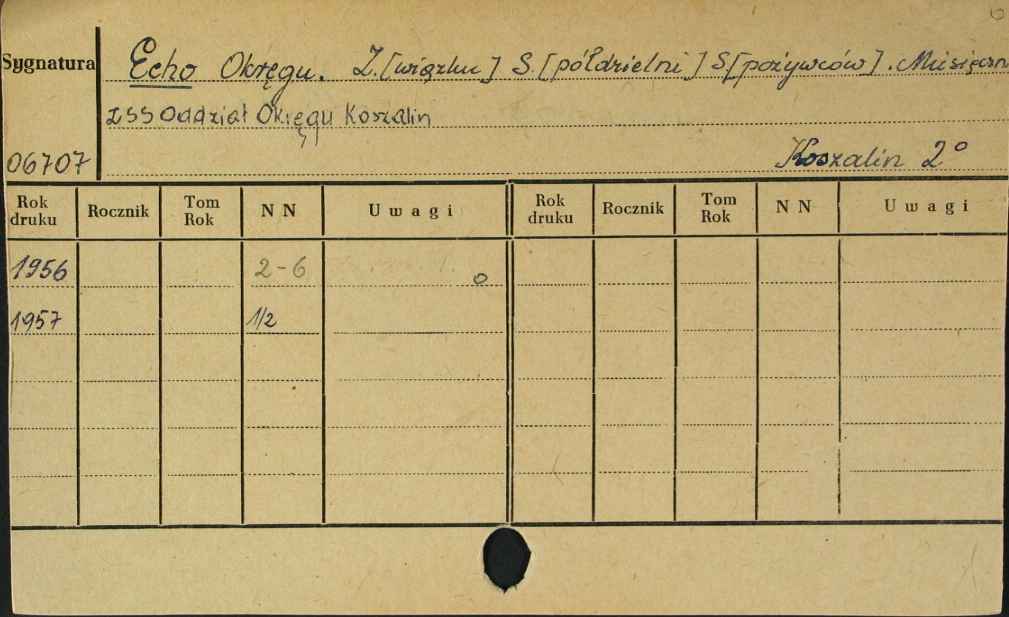 Sygnatura
Echo Okręgu. Z.[wiązku] S.[półdzielni] S[pożywców]. Miesięczn
ZSS Oddział Okręgu Koszalin
06707 Koszalin 2°
Rok druku Rocznik Tom Rok N N Uwagi Rok druku Rocznik Tom Rok N N Uwagi
1956 2-6 o
1957 1/2